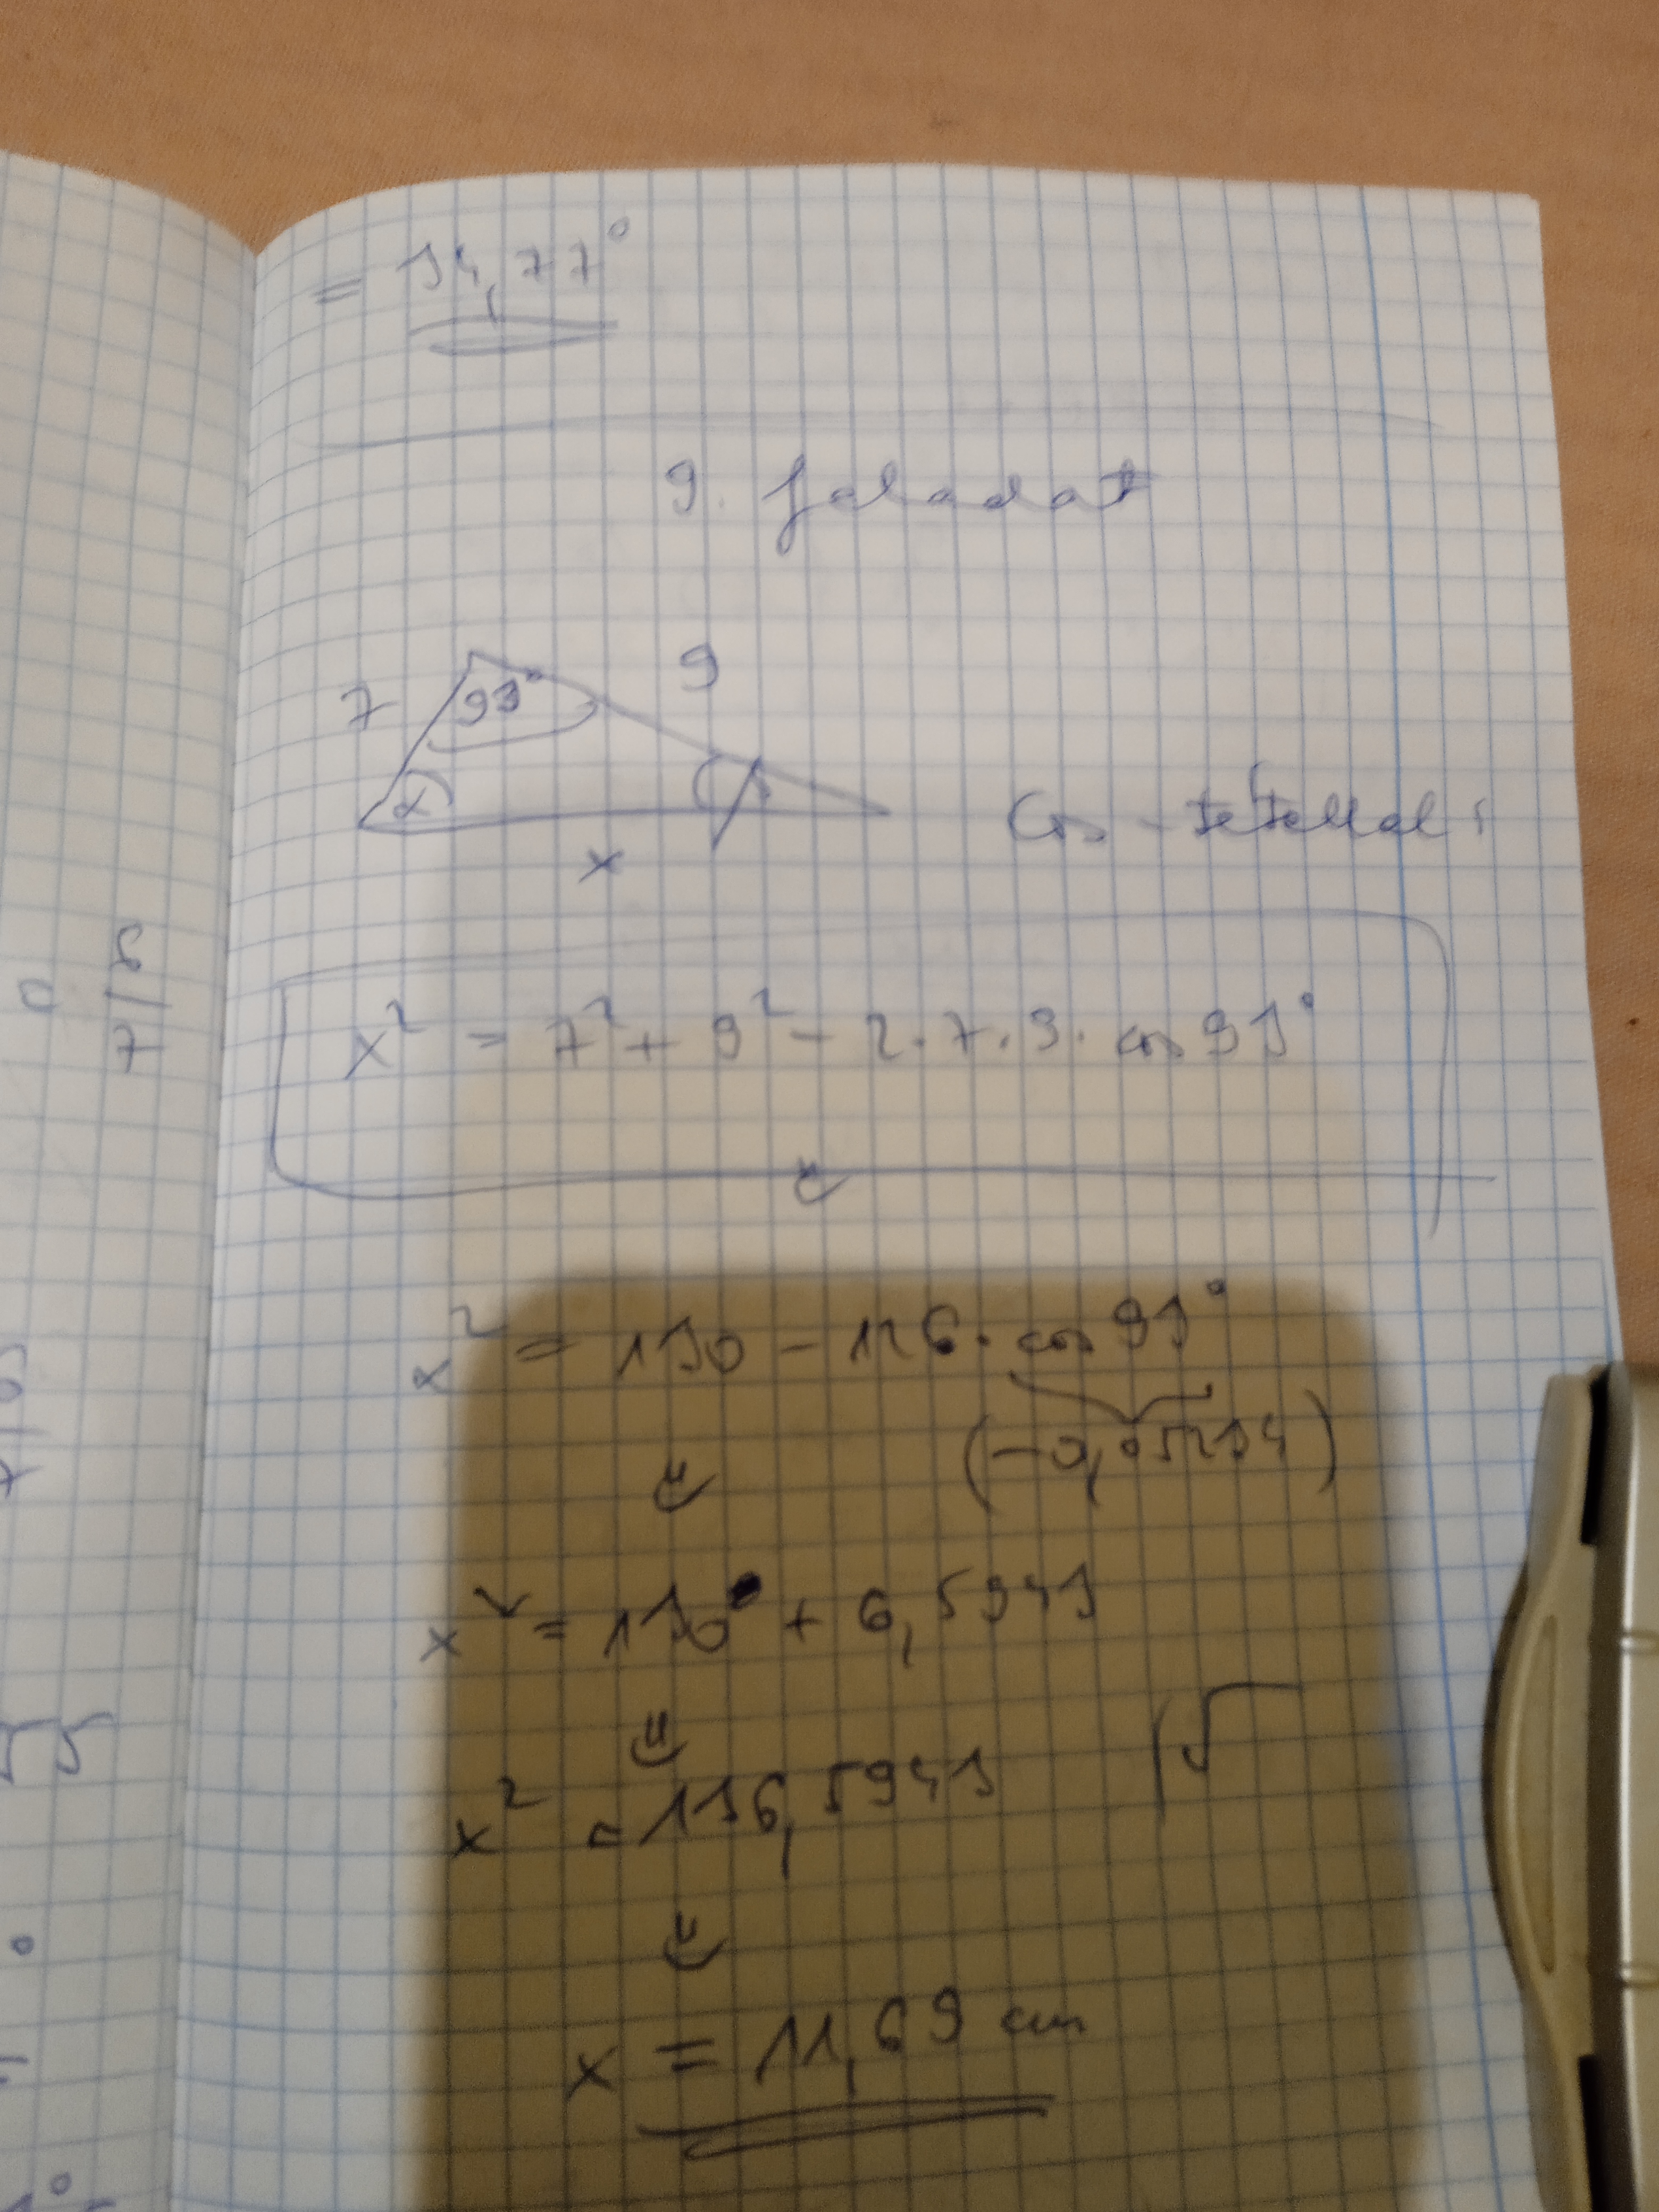 = 34,77°
9. feladat
7 93° 9
α β
x
Cos-tétellel:
x² = 7² + 9² - 2·7·9· cos 93°
x² = 130 - 126· cos 93°
(-0,05234)
x² = 130 + 6,5943
x² = 136,5943 /√
x = 11,69 cm